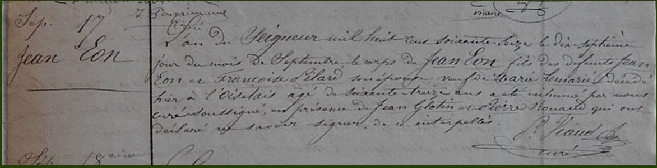 Sép. 17
Jean Eon
L'an du Seigneur mil huit cent soixante seize le dix-septième
jour du mois de Septembre le corps de Jean Eon fils des défunts Jean
Eon et Françoise son épouse veuf de Marie décédé
hier à âgé de soixante-treize ans a été inhumé par nous
curé soussigné, en présence de Jean Glotin et Pierre qui ont
déclaré ne savoir signer, de ce interpellés.
P.
curé
Sép. 18